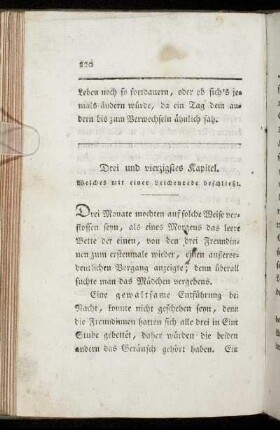 220
Leben noch so fortdauern, oder ob sich's je-
mals ändern würde, da ein Tag dem an-
dern bis zum Verwechseln ähnlich sah.
Drei und vierzigstes Kapitel.
Welches mit einer Leichenrede beschließt.
Drei Monate mochten auf solche Weise ver-
flossen seyn, als eines Morgens das leere
Bette der einen, von den drei Freundin-
nen zum erstenmale wieder, einen außeror-
dentlichen Vorgang anzeigte; denn überall
suchte man das Mädchen vergebens.
Eine gewaltsame Entführung bei
Nacht, konnte nicht geschehen seyn, denn
die Freundinnen hatten sich alle drei in Eine
Stube gebettet, daher würden die beiden
andern das Geräusch gehört haben. Ein